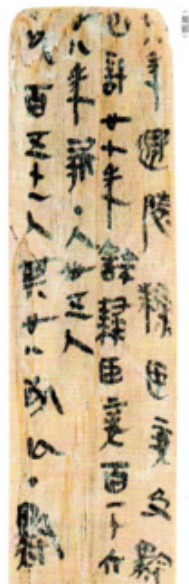 廿八年遷陵隸臣妾及黔
已計廿七年餘隸臣妾百一十六
廿八年新・入卅五人
凡百五十一人其廿八死亡・黔